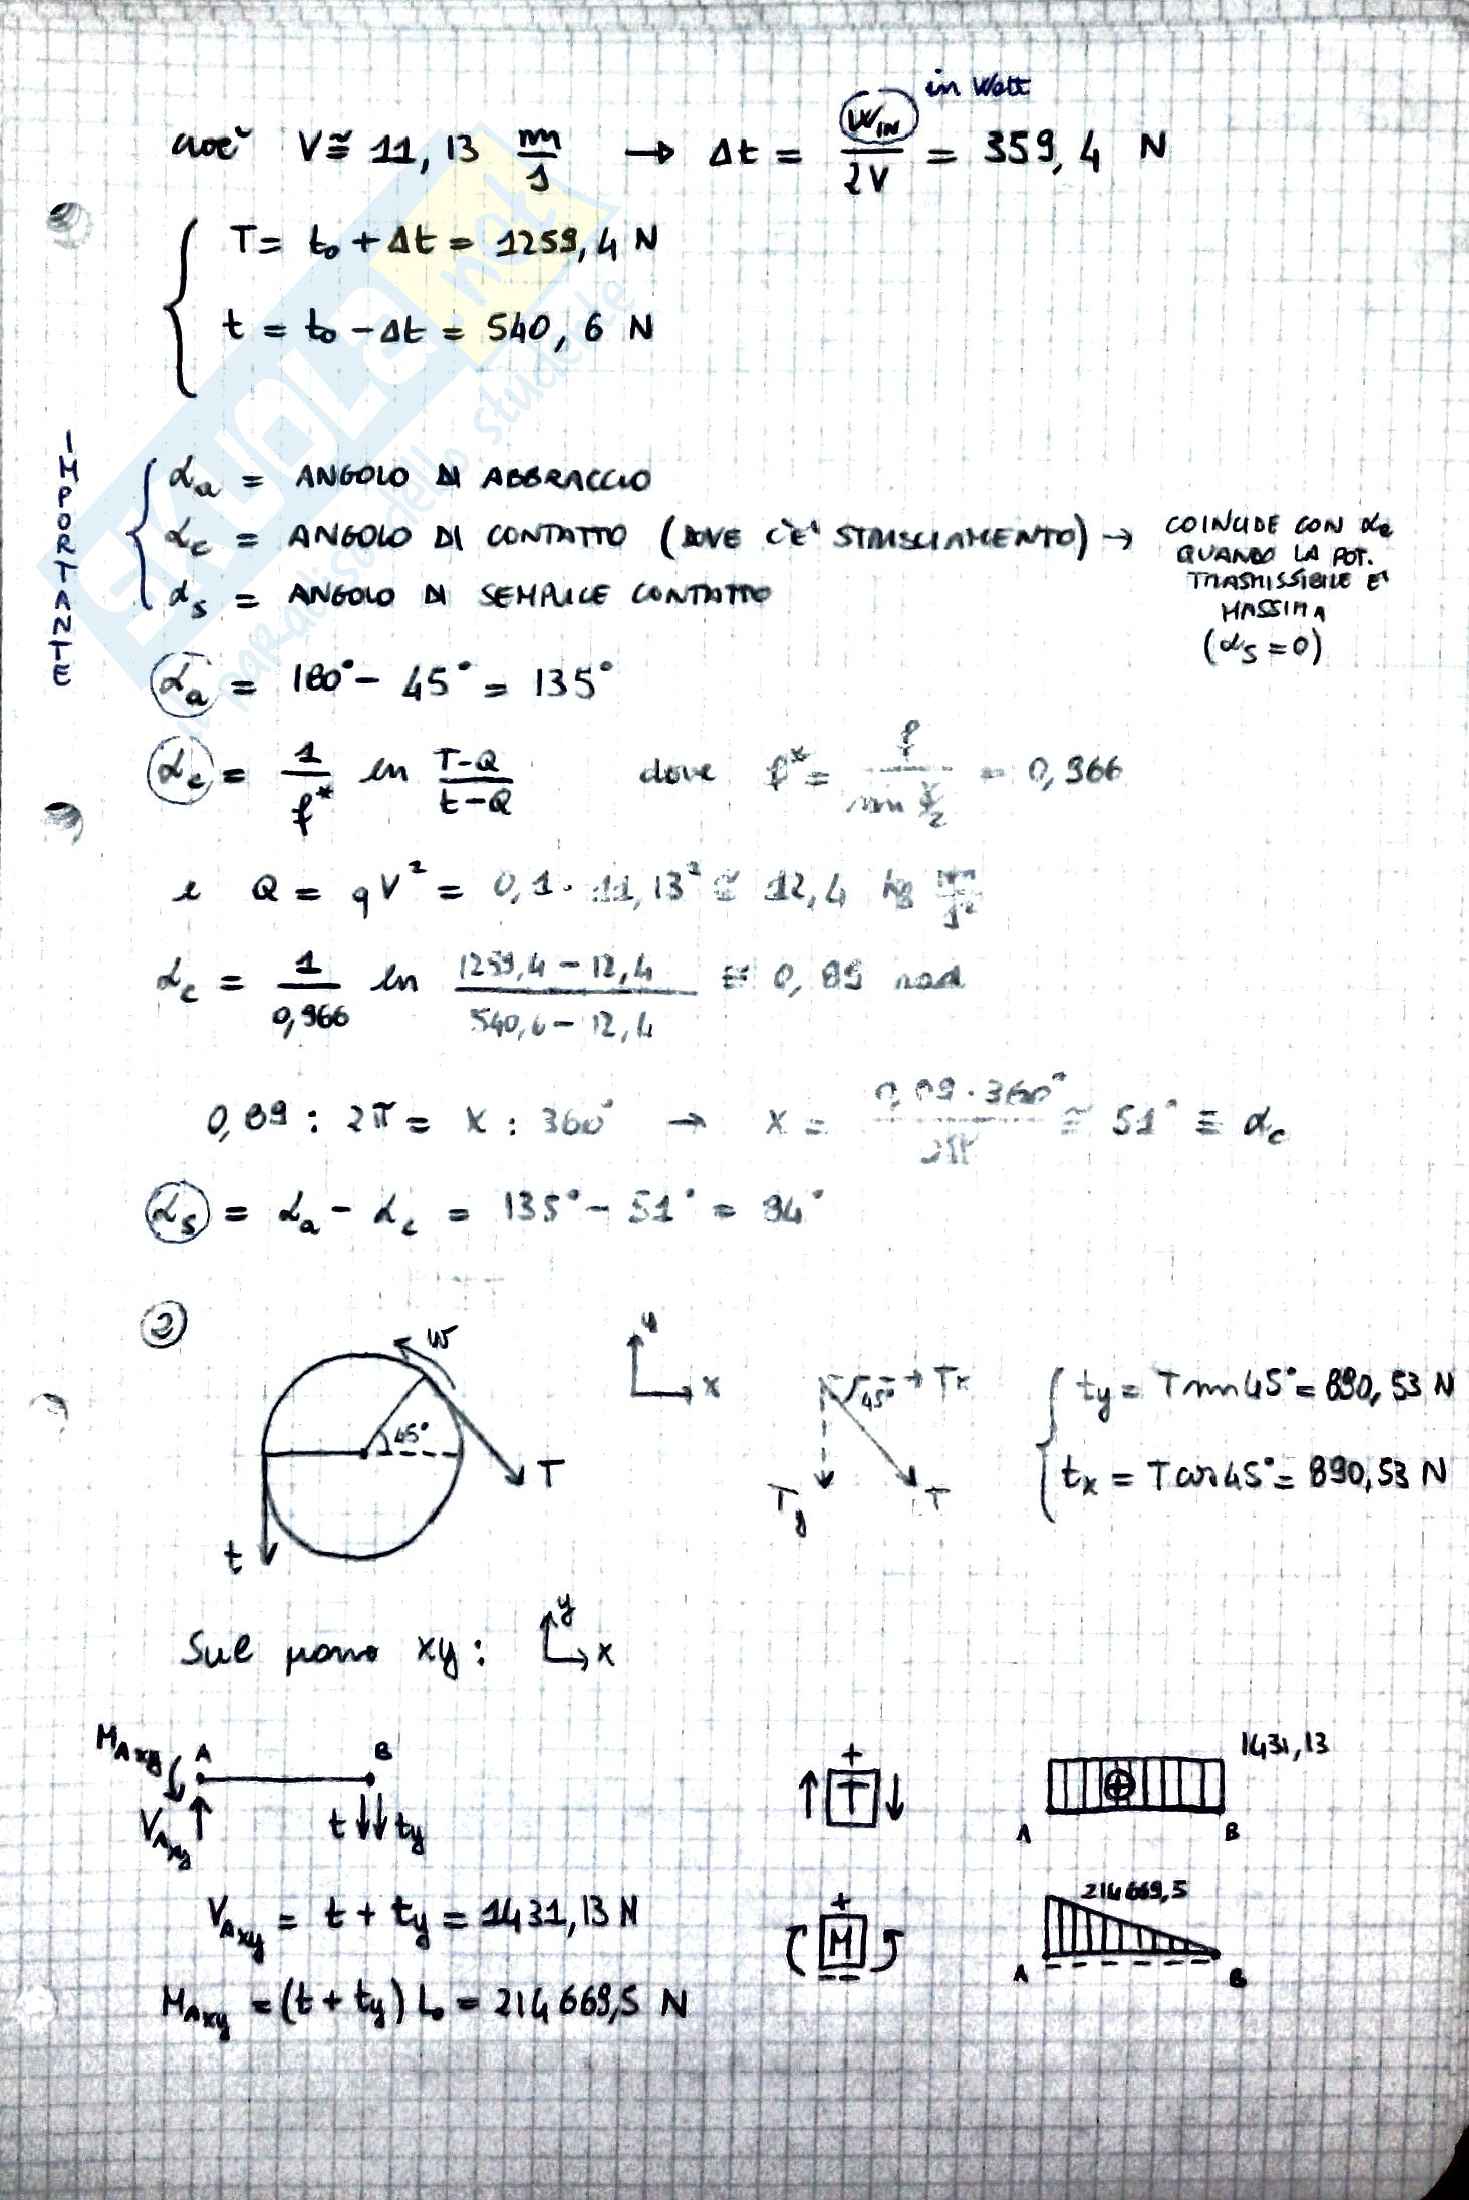 in Watt
cioè V ≅ 11,13 m/s → Δt = W_IN / 2V = 359,4 N
T = t₀ + Δt = 1259,4 N
t = t₀ - Δt = 540,6 N
IMPORTANTE
α_a = ANGOLO DI ABBRACCIO
α_c = ANGOLO DI CONTATTO (DOVE C'È STRISCIAMENTO) → COINCIDE CON α_a
QUANDO LA POT.
TRASMISSIBILE E'
MASSIMA
(α_s = 0)
α_s = ANGOLO DI SEMPLICE CONTATTO
α_a = 180° - 45° = 135°
α_c = 1/f* ln (T-Q)/(t-Q) dove f* = f / sin γ/2 = 0,966
e Q = qV² = 0,1 · 11,13² ≅ 12,4 kg m/s²
α_c = 1/0,966 ln (1259,4 - 12,4)/(540,6 - 12,4) ≅ 0,89 rad
0,89 : 2π = x : 360° → x = 0,89 · 360° / 2π ≅ 51° ≡ α_c
α_s = α_a - α_c = 135° - 51° = 94°
2
w
45°
T
t
y
x
45°
Tx
Ty
T
ty = T sin 45° = 890,53 N
tx = T cos 45° = 890,53 N
Sul piano xy: y x
M_Axy A B
V_Axy t ty
+ T
1431,13
A B
V_Axy = t + ty = 1431,13 N
+ M
214669,5
A B
M_Axy = (t + ty) L₀ = 214669,5 N
SKUOLA.net
il paradiso dello studente